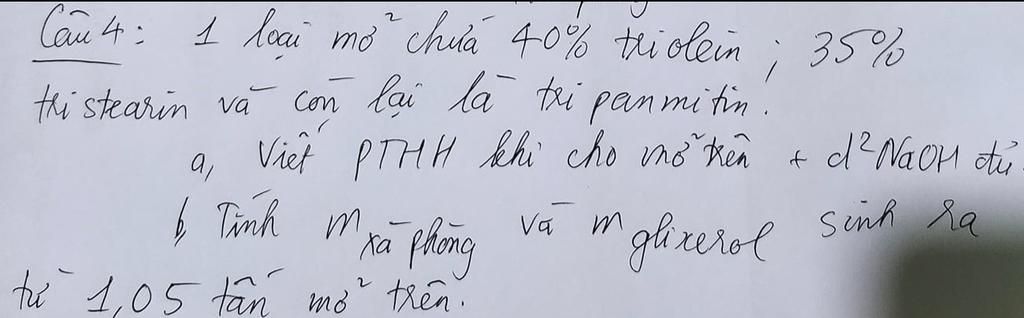 Câu 4: 1 loại mỡ chứa 40% triolein; 35%
tristearin và còn lại là tripanmitin.
a, Viết PTHH khi cho mỡ trên + d² NaOH đủ.
b, Tính m xà phòng và m glixerol sinh ra
từ 1,05 tấn mỡ trên.